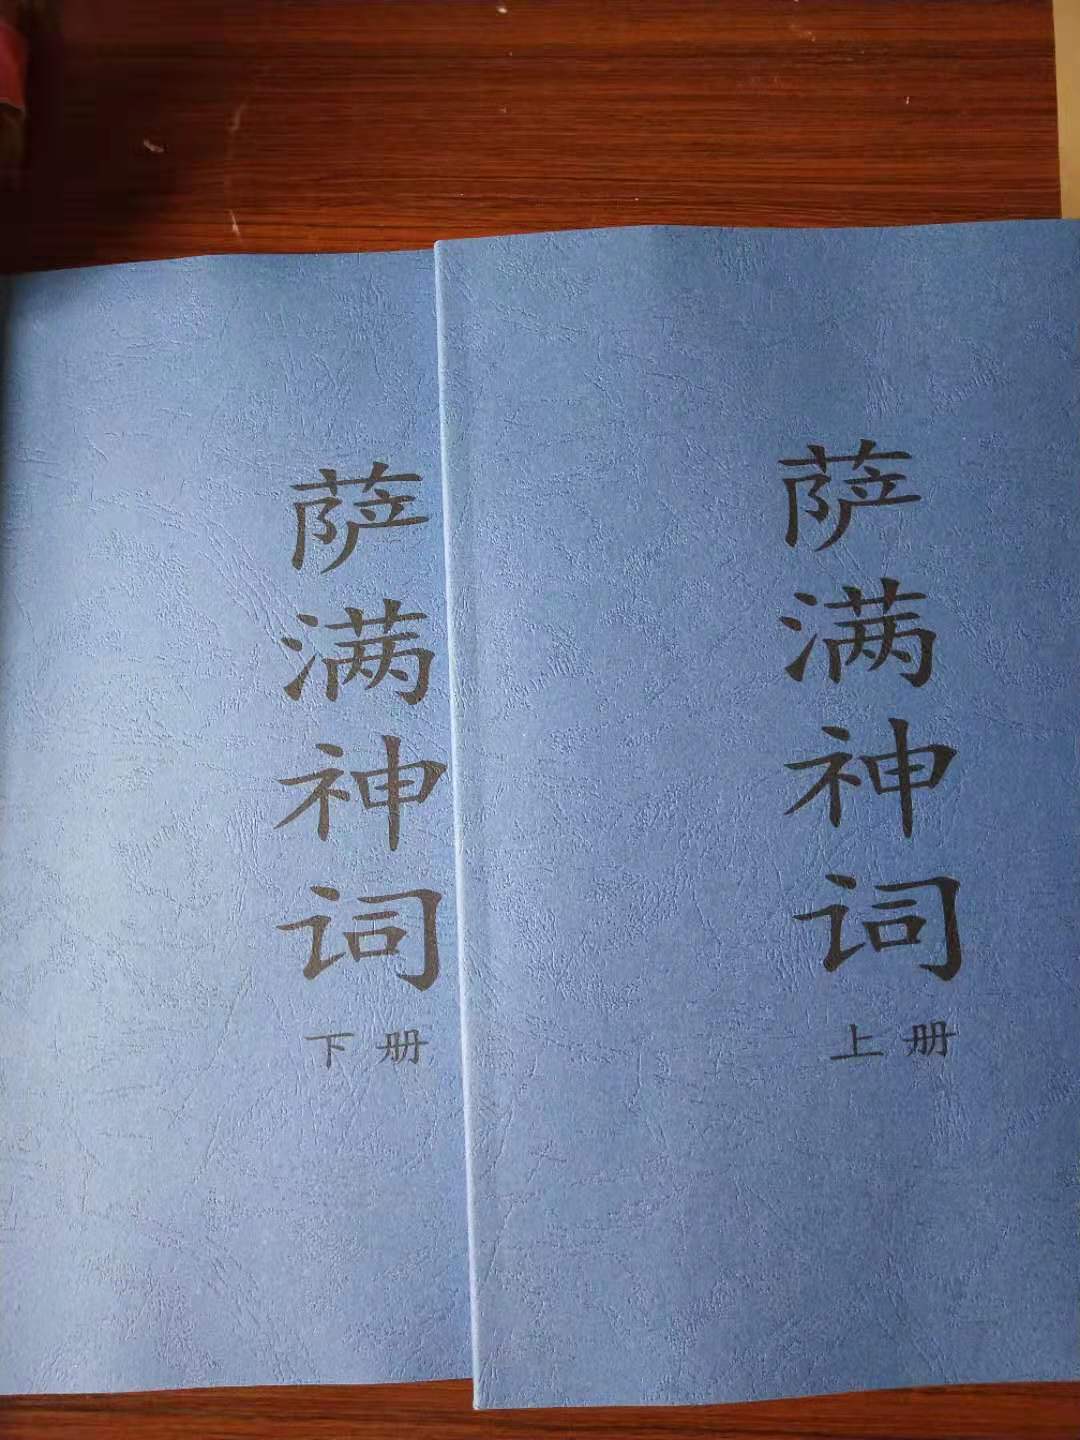 萨满神词
上册
萨满神词
下册